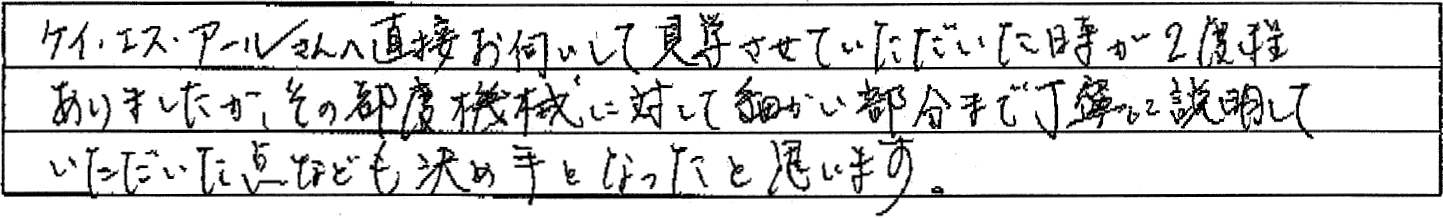 ケイ・エス・アールさんへ直接お伺いして見学させていただいた時が2度程
ありましたが、その都度機械に対して細かい部分まで丁寧に説明して
いただいた点なども決め手となったと思います。